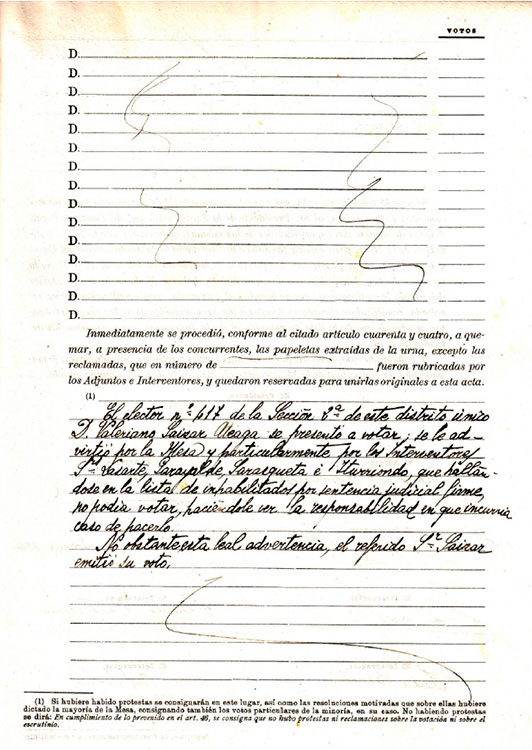 VOTOS
D.
D.
D.
D.
D.
D.
D.
D.
D.
D.
D.
D.
D.
D.
D.
Inmediatamente se procedió, conforme al citado artículo cuarenta y cuatro, a que-
mar, a presencia de los concurrentes, las papeletas extraídas de la urna, excepto las
reclamadas, que en número de fueron rubricadas por
los Adjuntos e Interventores, y quedaron reservadas para unirlas originales a esta acta.
(1)
El elector n.º 417 de la Sección 2ª de este distrito único
D. Valeriano Saizar Ateaga se presentó a votar, se le ad-
virtió por la Mesa y particularmente por los Interventores
Sres Lasarte, de Sarasqueta é Iturriondo, que hallán-
dose en la lista de inhabilitados por sentencia judicial firme,
no podia votar, haciéndole ver la responsabilidad en que incurria
caso de hacerlo.
No obstante esta leal advertencia, el referido Sr. Saizar
emitió su voto.
(1) Si hubiere habido protestas se consignarán en este lugar, así como las resoluciones motivadas que sobre ellas hubiere
dictado la mayoría de la Mesa, consignando también los votos particulares de la minoría, en su caso. No habiendo protestas
se dirá: En cumplimiento de lo prevenido en el art. 46, se consigna que no hubo protestas ni reclamaciones sobre la votación ni sobre el
escrutinio.